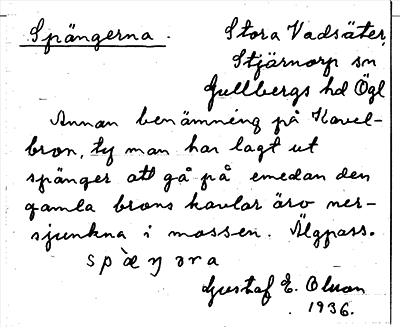 Spängerna.
Stora Vadsäter,
Stjärnorp sn
Gullbergs hd Ögl
Annan benämning på Kavel-
bron, ty man har lagt ut
spänger att gå på emedan den
gamla brons kavlar äro ner-
sjunkna i mossen. Älgpass.
spæ̀ŋəra
Gustaf E. Olson
1936.